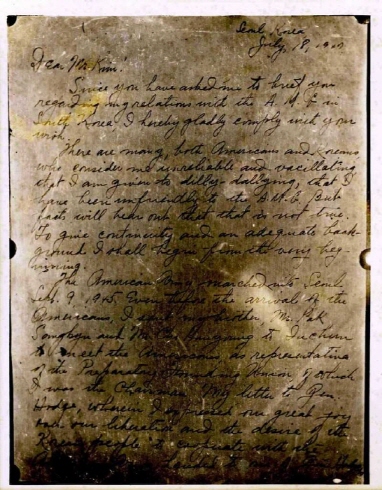 Seoul Korea
July, 18, 19
Dear Mr. Kim:
Since you have asked me to brief you
regarding my relations with the A. M. G in
South Korea I hereby gladly comply with your
wish.
There are many, both Americans and
who consider me unreliable and vacillating
that I am given to dilly-dallying, that I
have been unfriendly to the But
facts will bear out that that is not true.
To give continuity and an adequate back-
ground I shall begin from the very beg-
inning.
The American Army marched into Seoul
9, 1945. Even before the arrival of the
Americans, I sent my brother, Mr. Pak
and Mr. to Inchon
to meet the Americans as representative
of the Preparatory Union of which
I was the Chairman. My letter to Gen.
Hodge, wherein I expressed our great joy
over our liberation and the desire of the
Korean people to cooperate with